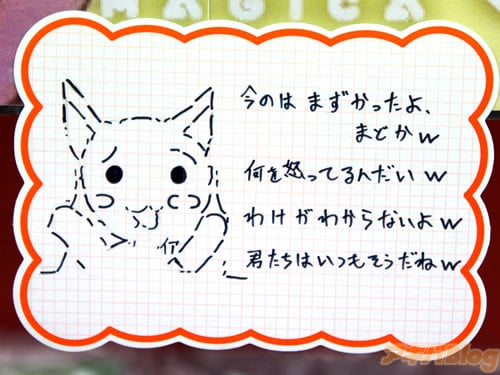 MAGICA
今のは まずかったよ、
まどかw
何を怒ってるんだいw
わけがわからないよw
君たちはいつもそうだねw
アキバBlog